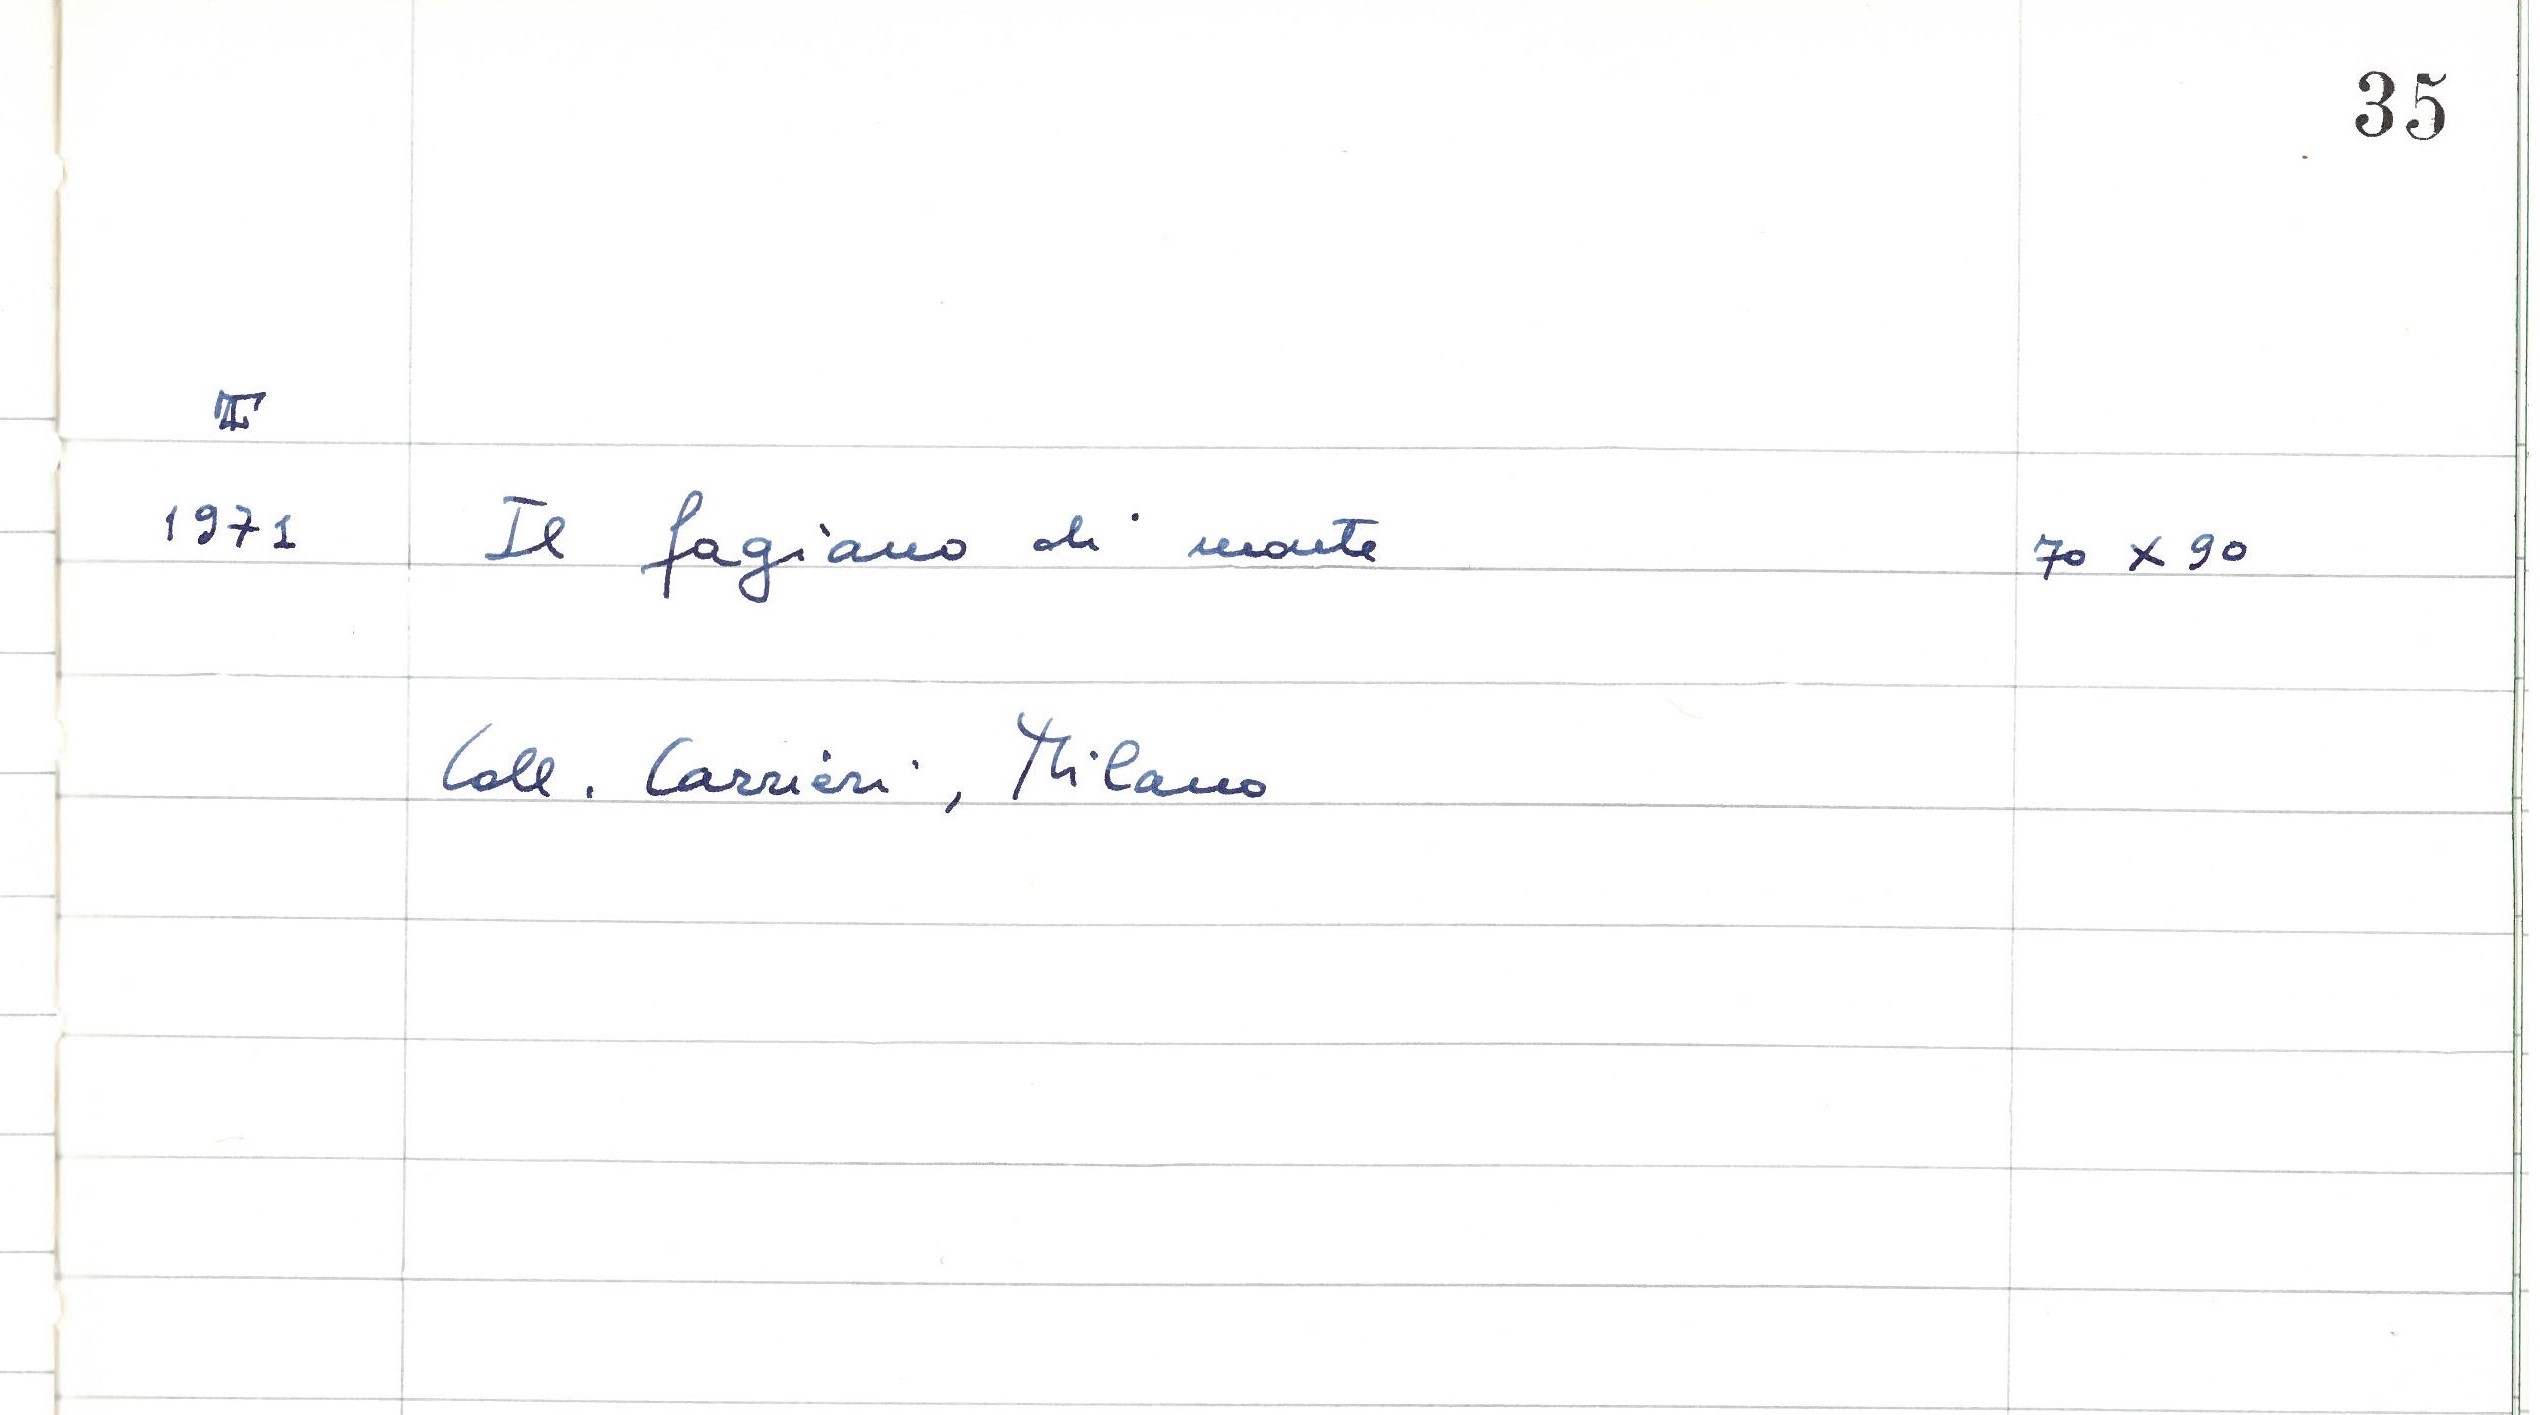 35
1971 Il fagiano di monte 70 x 90
Coll. Carrieri, Milano